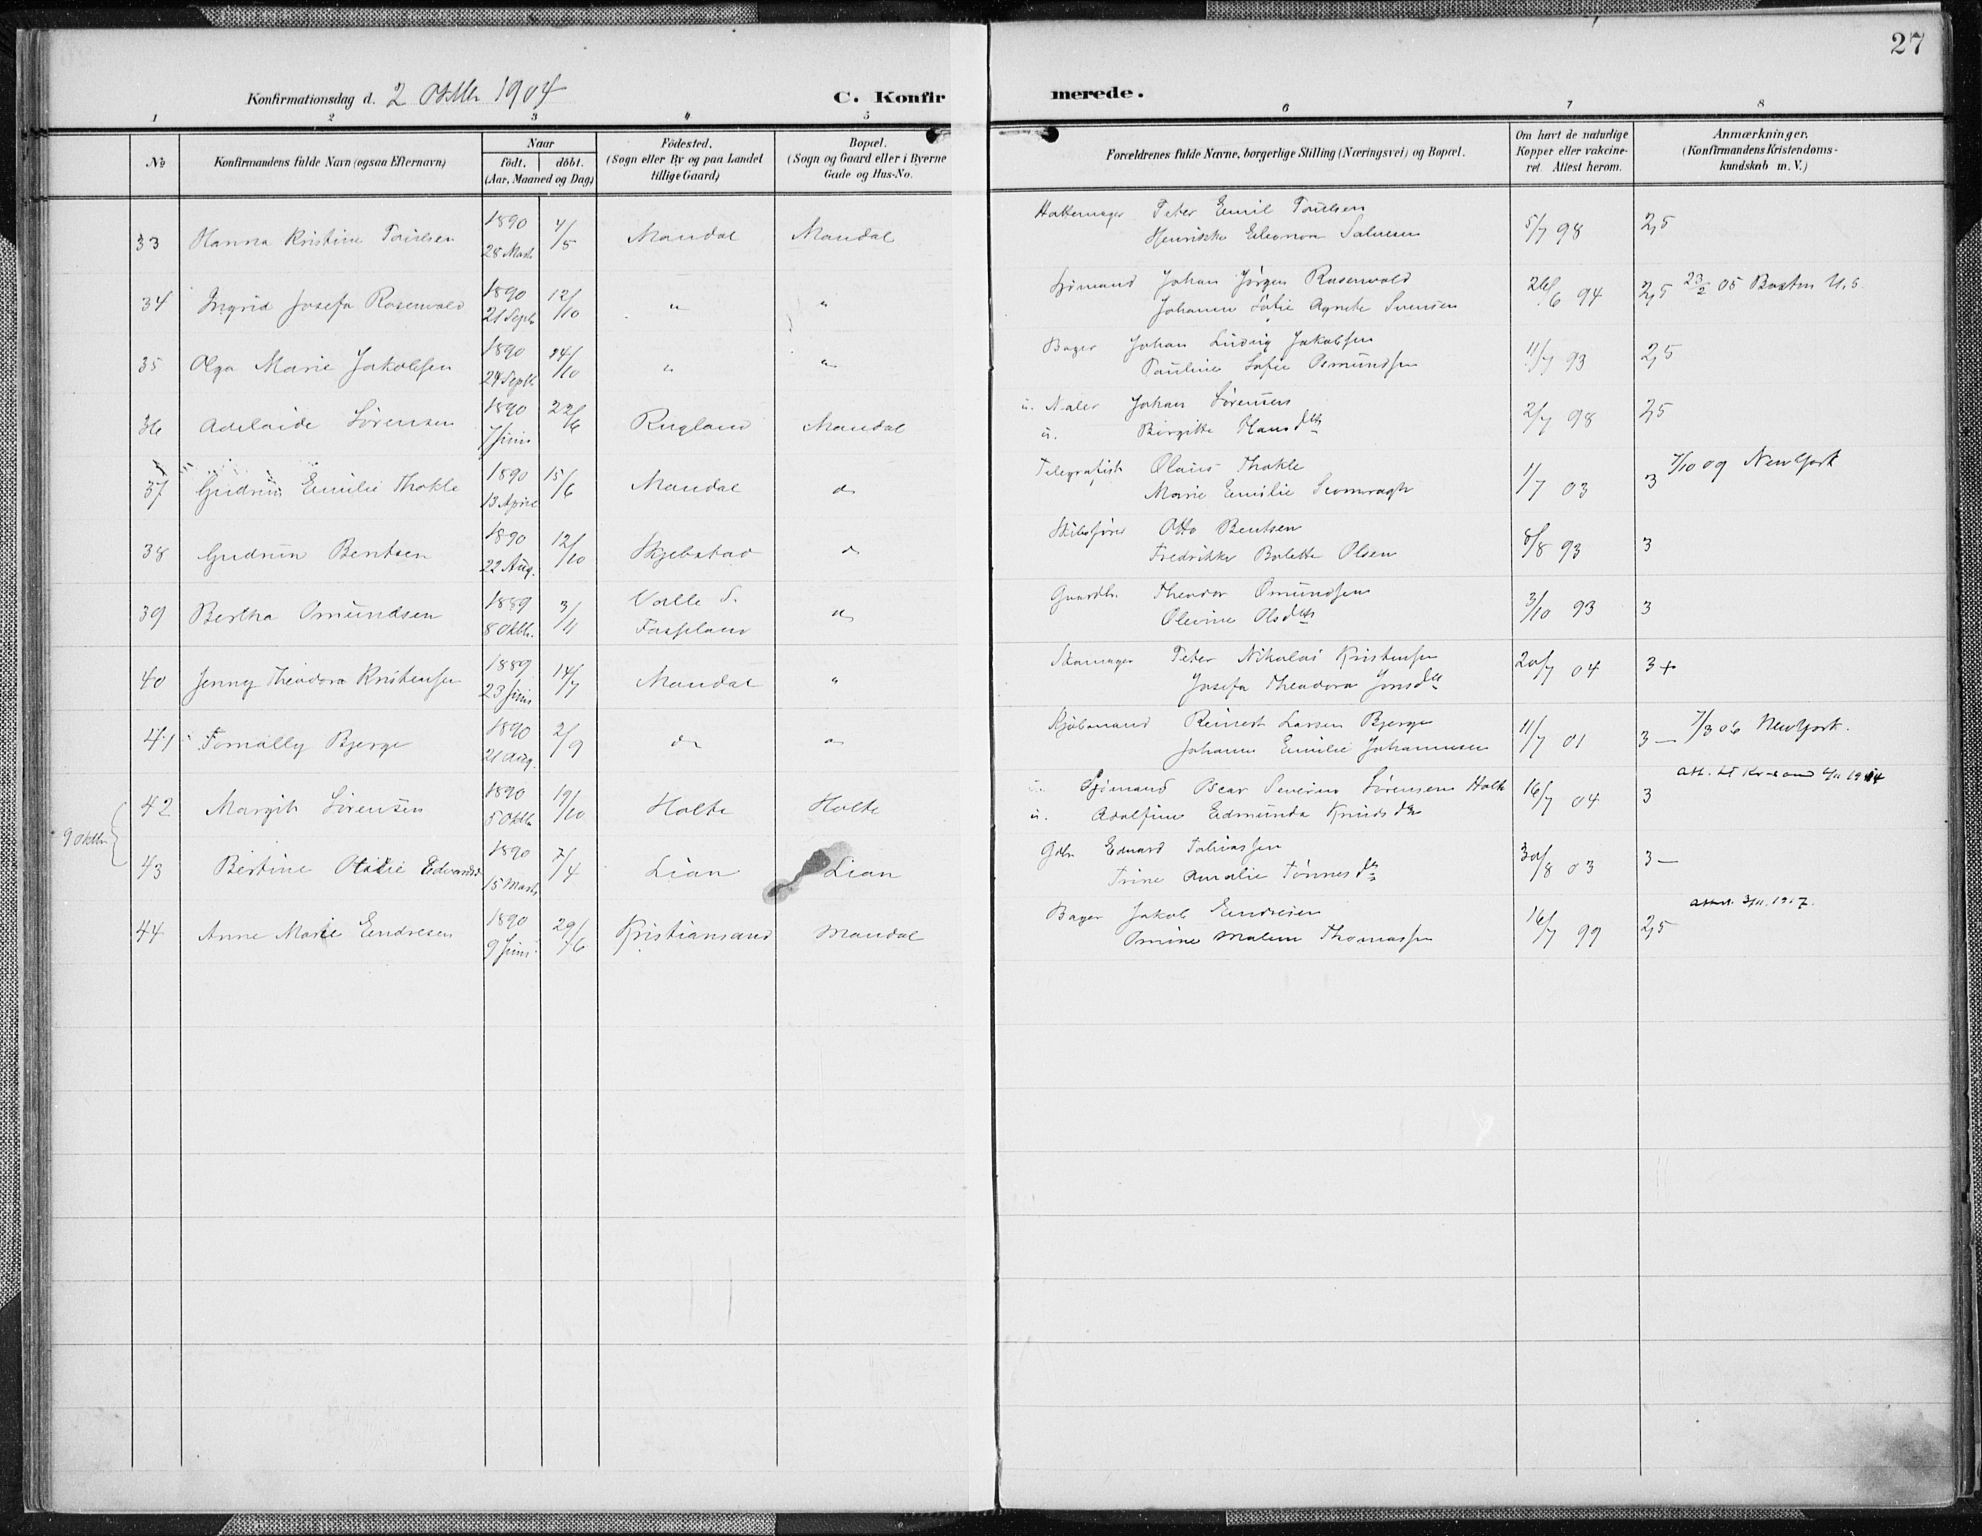 27
Konfirmationsdag d. 2 Oktbr 1904 C. Konfir merede.
1 2 3 4 5 6 7 8
No Konfirmandens fulde Navn (ogsaa Efternavn) Naar født. døbt. (Aar, Maaned og Dag) Fødested. (Sogn eller By og paa Landet tillige Gaard) Bopæl. (Sogn og Gaard eller i Byerne Gade og Hus-No. Forældrenes fulde Navne, borgerlige Stilling (Næringsvei) og Bopæl. Om havt de naturlige Kopper eller vakcineret. Attest herom. Anmærkninger. (Konfirmandens Kristendomskundskab m. V.)
33 Hanna Kristine Paulsen 1890 28 Marts 4/5 Mandal Mandal Hattemager Peter Emil Paulsen 5/7 98 2,5
Henrikke Eleonora Salvesen
34 Ingrid Josefa Rosenvold 1890 21 Septb. 12/10 " " Sjømand Johan Jørgen Rosenvold 26/6 94 2,5 23/2 05 Boston U.S.
Johanne Sofie Agnete Svensen
35 Olga Marie Jakobsen 1890 24 Septb. 24/10 " " Bager Johan Ludvig Jakobsen 11/7 93 2,5
Pauline Sofie Osmundsen
36 Adelaide Sørensen 1890 7 Juni 22/6 Rugland Mandal u. Maler Johan Sørensen 2/7 98 2,5
u. Birgitte Hansdtr
37 Gudrun Emilie Thokle 1890 13 April 15/6 Mandal do Telegrafist Olaus Thokle 1/7 03 3 7/10 09 New York
Marie Emilie
38 Gudrun Bentsen 1890 22 Aug. 12/10 Skjebstad do Skibsfører Otto Bentsen 8/8 93 3
Fredrikke Bolette Olsen
39 Bertha Omundsen 1889 8 Oktb. 3/11 Valle S. do Gaardbr. Theodor Omundsen 3/10 93 3
Fasseland Olevine Olsdtr
40 Jenny Theodora Kristensen 1889 23 Juni 14/7 Mandal " Skomager Peter Nikolai Kristensen 20/7 04 3+
Josefa Theodora Jonsdtr
41 Tomally Bjerge 1890 21 Aug. 2/9 do do Kjøbmand Reinert Larsen Bjerge 11/7 01 3- 7/3 06 New York.
Johanne Emilie Johannesen
9 Oktbr. 42 Margit Sørensen 1890 5 Oktb. 19/10 Holte Holte u. Sjømand Oscar Severin Sørensen Holte 16/7 04 3 Att. til Kr.sand 4/11 1914
u. Adolfine Edmunda Knudsdtr
43 Bertine Otilie Edvardsd. 1890 15 Marts 7/4 Lian Lian Gdbr. Edvard Tobiassen 30/8 03 3-
Trine Amalie Tønnesdtr
44 Anne Marie Endresen 1890 9 Juni 29/6 Kristiansand Mandal Bager Jakob Endresen 16/7 99 2,5 Attest. 3/11. 1917.
Omine Malene Thomassen